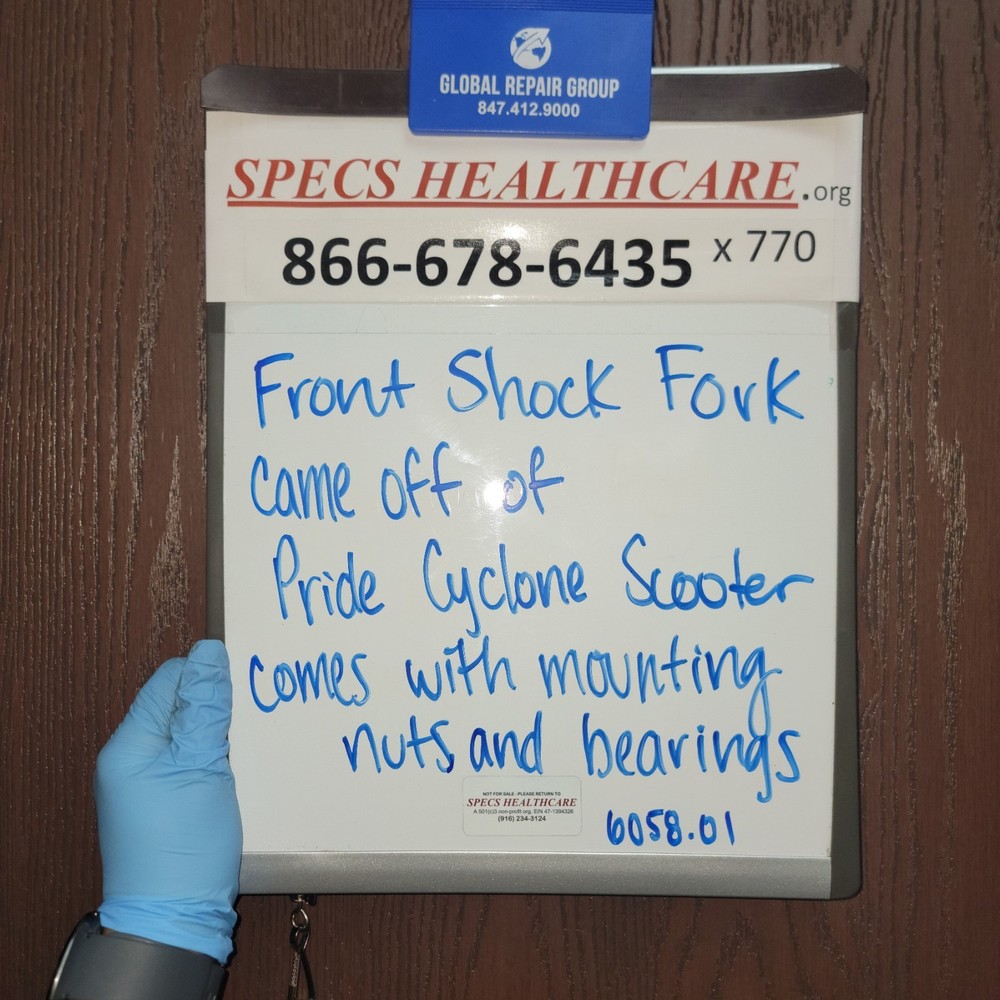 GLOBAL REPAIR GROUP
847.412.9000
SPECS HEALTHCARE.org
866-678-6435 x 770
Front Shock Fork
came off of
Pride Cyclone Scooter
comes with mounting
nuts and bearings
NOT FOR SALE - PLEASE RETURN TO
SPECS HEALTHCARE
A 501(c)3 non-profit org. EIN 47-1394326
(916) 234-3124
6058.01